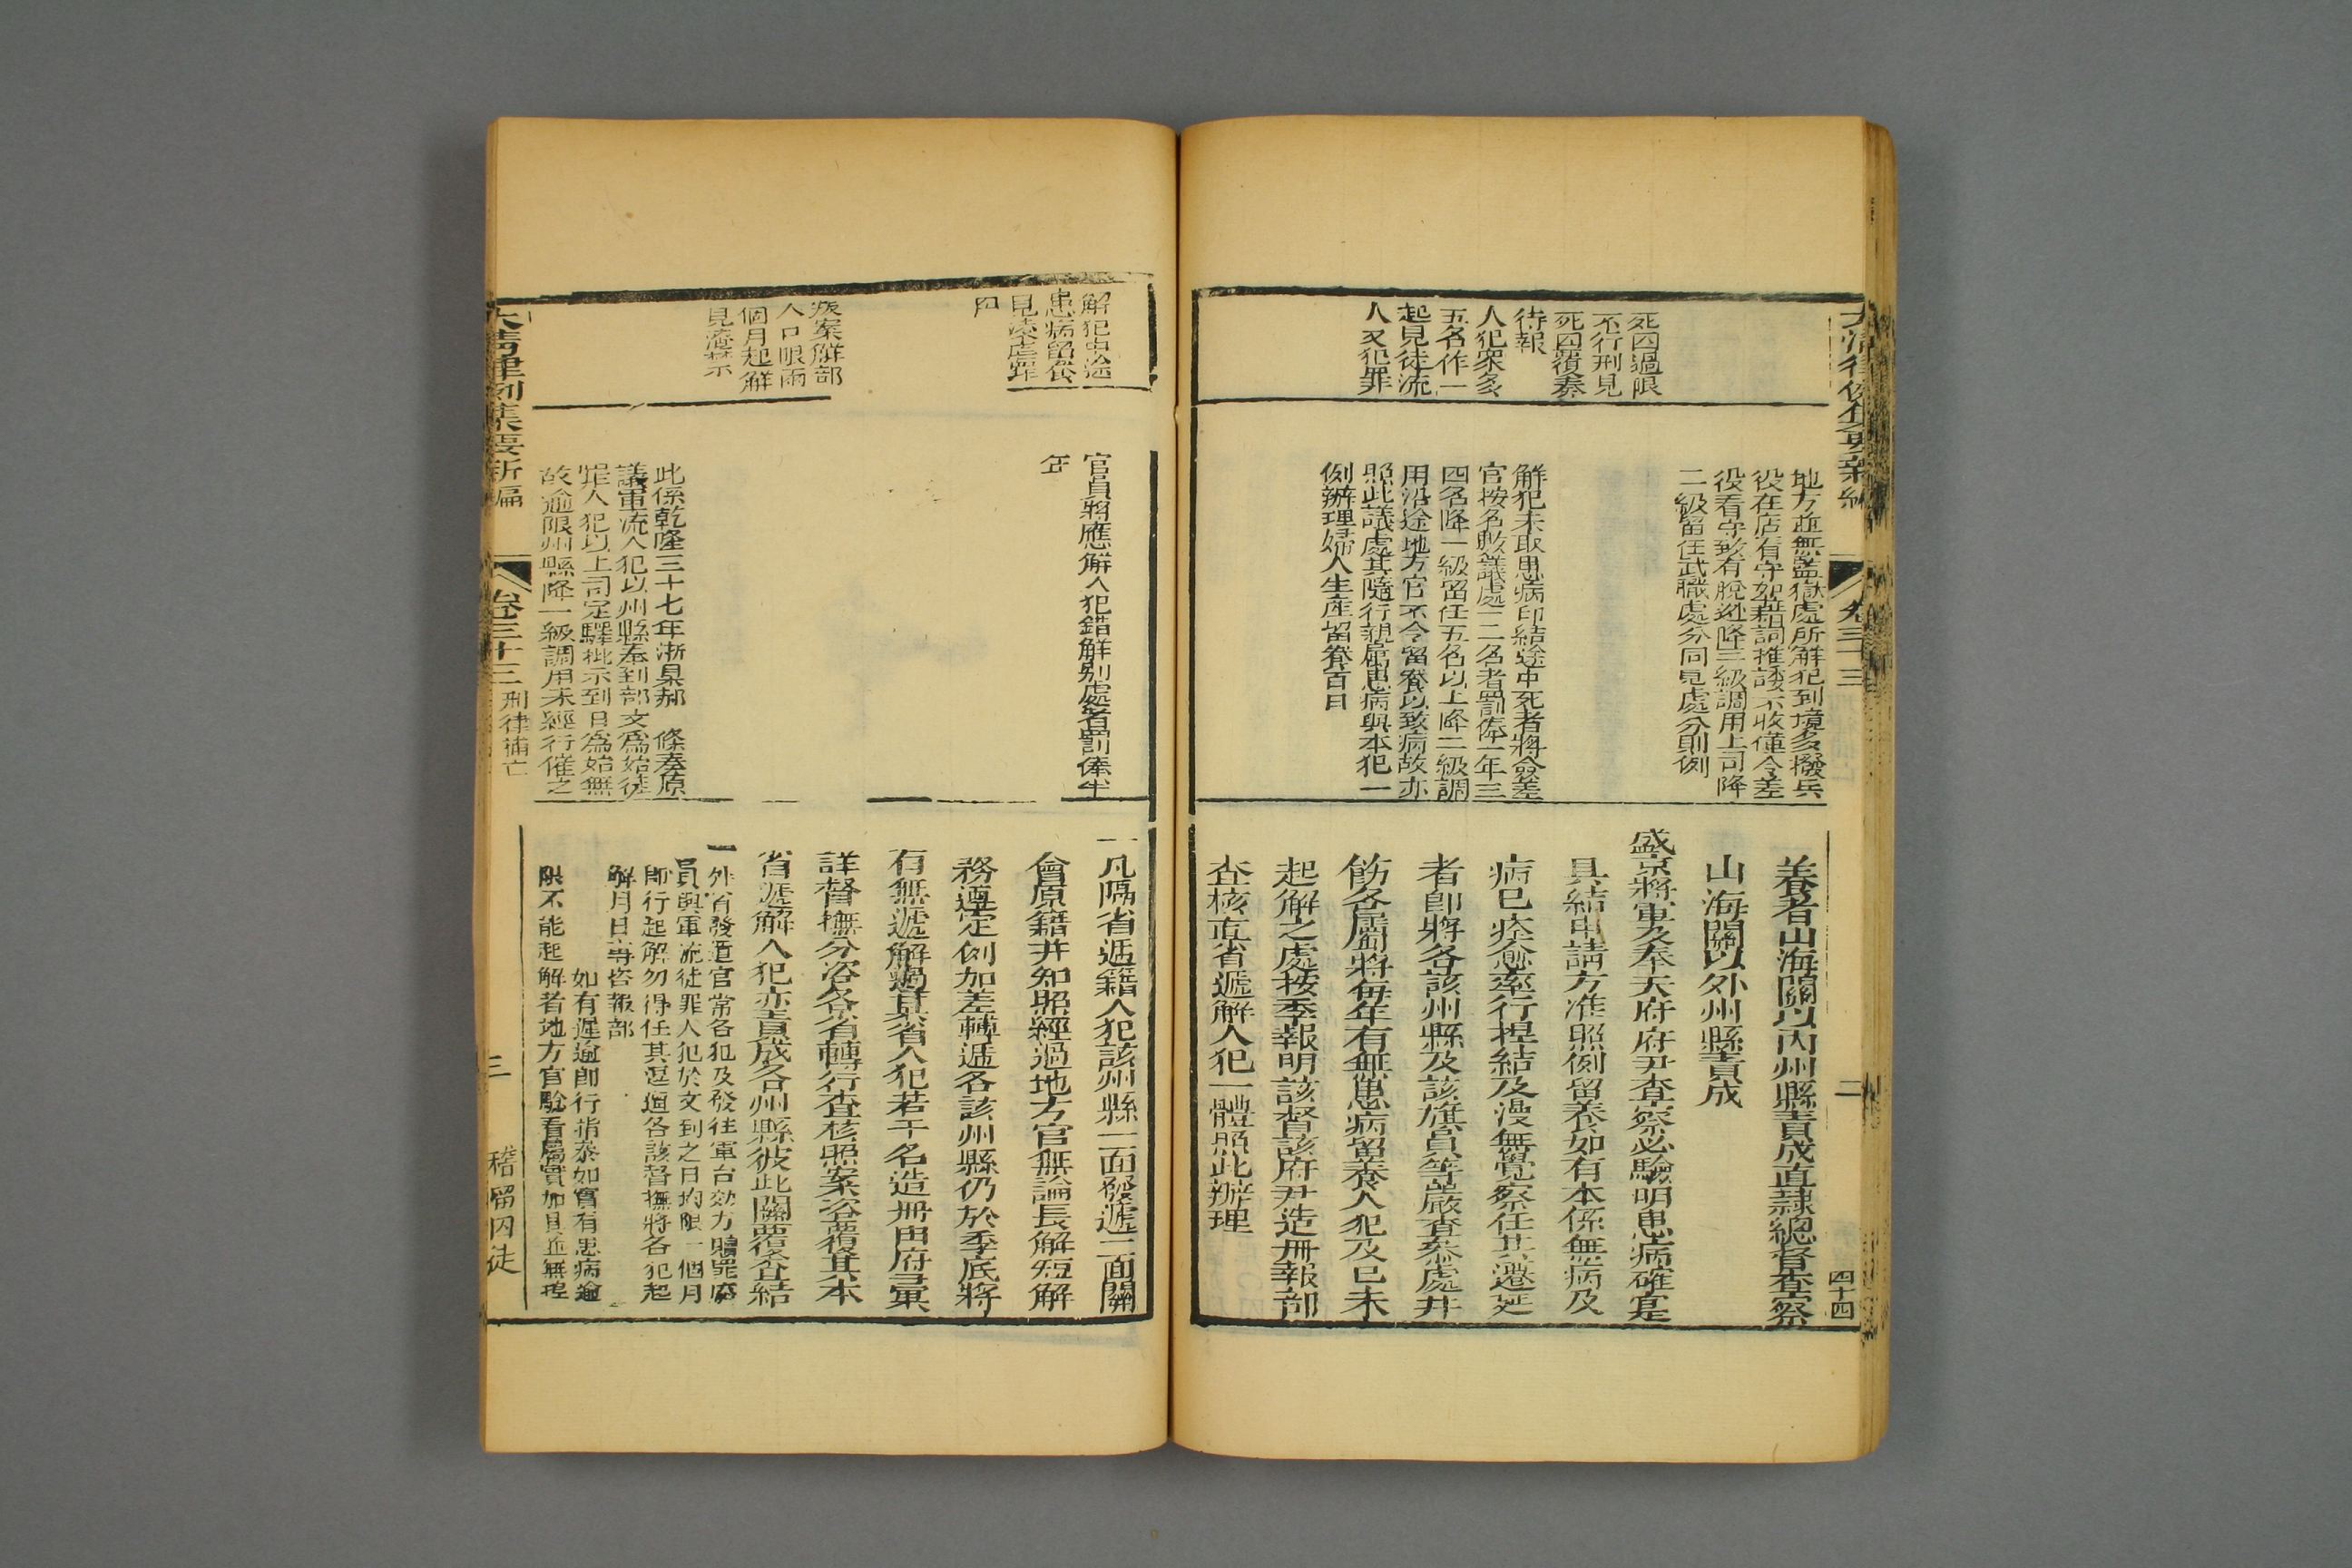 大清律例集要新編
卷三十三
二
四十四
死囚過限
不行刑見
死囚覆奏
待報
人犯衆多
五名作一
起見徒流
人又犯罪
地方並無監獄處所解犯到境多撥兵
役在店看守如藉詞推諉不收僅令差
役看守致有脫逃降三級調用上司降
二級留任武職處分同見處分則例
解犯未取患病印結途中死者將僉差
官按名數議處一二名者罰俸一年三
四名降一級留任五名以上降二級調
用沿途地方官不令留養以致病故亦
照此議處其隨行親屬患病與本犯一
例辦理婦人生產留養百日
養者山海關以內州縣責成直隸總督查察
山海關以外州縣責成
盛京將軍及奉天府府尹查察必驗明患病確寔
具結申請方准照例留養如有本係無病及
病已痊愈率行捏結及漫無覺察任其遷延
者卽將各該州縣及該旗員等嚴查叅處并
飭各屬將每年有無患病留養人犯及已未
起解之處按季報明該督該府尹造册報部
查核直省遞解人犯一體照此辦理
解犯中途
患病留養
見淩虐罪
囚
叛案解部
人口限兩
個月起解
見濫禁不
官員將應解人犯錯解别處者罰俸半
年
此係乾隆三十七年浙臬郝　條奏原
議軍流人犯以州縣奉到部文爲始徒
罪人犯以上司定驛批示到日爲始無
故逾限州縣降一級調用未經行催之
一凡隔省遞籍人犯該州縣一面發遞一面關
會原籍并知照經過地方官無論長解短解
務遵定例加差轉遞各該州縣仍於季底將
有無遞解過某省人犯若干名造册由府彙
詳督撫分咨各省轉行查核照案咨覆其本
省遞解人犯亦責成各州縣彼此關覆查結
一外省發遣官常各犯及發往軍台効力贖罪廢
員與軍流徒罪人犯於文到之日均限一個月
卽行起解勿得任其逗遛各該督撫將各犯起
解月日專咨報部
如有遲逾卽行指叅如實有患病逾
限不能起解者地方官驗看屬實加具並無捏
大清律例集要新編
卷三十三
刑律捕亡
三
稽留囚徒